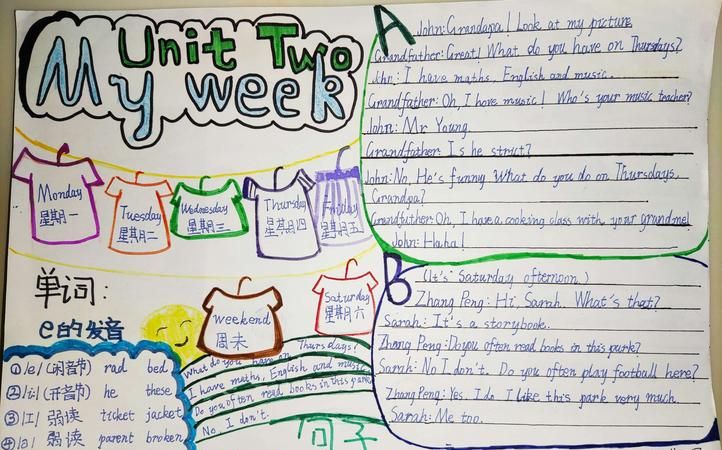 Unit Two
My week
Monday
星期一
Tuesday
星期二
Wednesday
星期三
Thursday
星期四
Friday
星期五
Saturday
星期六
weekend
周末
单词:
e的发音
①/e/ (闭音节) rad bed
②/i:/ (开音节) he these
③/I/ 弱读 ticket jacket
④/ə/ 弱读 parent broken
Thursdays?
What do you have on
I have maths, English and music
Do you often read books in this park
No, I don't.
句子
A
John: Grandapa! Look at my picture
Grandfather: Great! What do you have on Thursdays?
John: I have maths, English and music.
Grandfather: Oh, I have music! Who's your music teacher?
John: Mr Young.
Grandfather: Is he strict?
John: No, He's funny What do you do on Thursdays,
Grandpa?
Grandfather: Oh, I have a cooking class with your grandma!
John: Haha!
B
(It's Saturday afternoon.)
Zhang Peng: Hi, Sarah. What's that?
Sarah: It's a storybook.
Zhang Peng: Do you often read books in this park?
Sarah: No I don't. Do you often play football here?
Zhang Peng: Yes. I do I like this park very much.
Sarah: Me too.